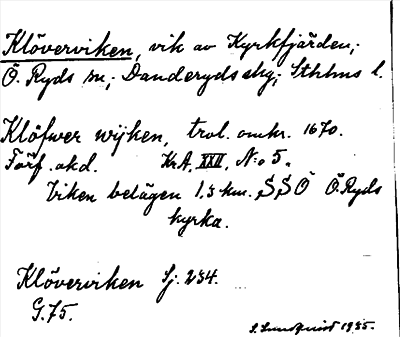 Klöverviken, vik av Kyrkfjärden;
Ö. Ryds sn; Danderyds skg; Sthlms l.
Klöfwer wijken, trol. omkr. 1670.
Förf. okd. Kr.A. XXII, N:o 5.
Viken belägen 1,3 km. S S Ö Ö. Ryds
kyrka.
Klöverviken Sj. 234.
G. 75.
S. Lundquist 1935.